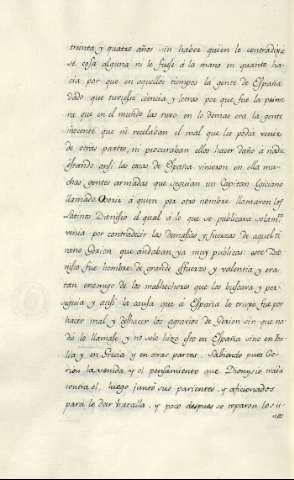 treinta y quatro años sin haber quien le contradixe
se cosa alguna ni le fuese á la mano en quanto ha
cia por que en aquellos tiempos la gente de España
dado que tuviese ciencia y letras por que fue la prime
ra que en el mundo las tuvo en lo demas era la gente
inocente que ni recelaban el mal que les podia venir
de otras partes, ni procuraban ellos hacer daño á nadie
Estando assi las cosas de España vinieron en ella mu
chas gentes armadas que seguian un Capitan
llamado á quien por otro nombre llamaron los
Latinos Dionisio el qual á lo que se publicaba solam.te
venia por contradecir las demasias y fuerzas de aquel ti
rano Gerion que andaban ya muy publicas: este Dio
nisio fue hombre de grande esfuerzo y valentia y era
tan enemigo de los malhechores que los buscava y per
seguia y assi la causa que á España le truxo fue por
hacer mal y deshacer los agravios de Gerion sin que na
die le llamase y no solo hizo esto en España sino en Ita
lia y en Grecia y en otras partes. Sabiendo pues Ge
rion la venida y el pensamiento que Dionysio traia
contra el, luego juntó sus parientes, y aficionados
para le dar batalla, y poco despues se toparon los u